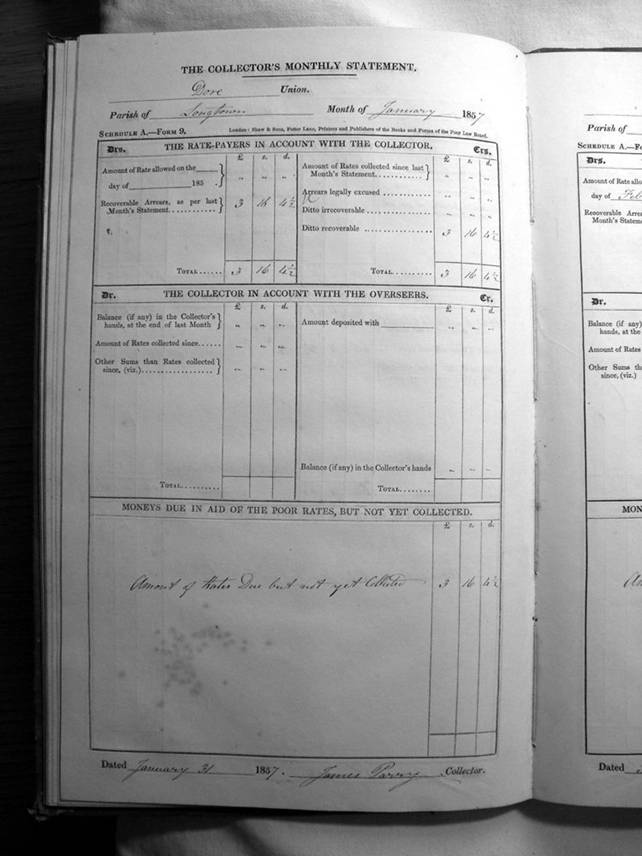 THE COLLECTOR'S MONTHLY STATEMENT.
Dore Union.
Parish of Longtown Month of January 1857
SCHEDULE A.—FORM 9. London: Shaw & Sons, Fetter Lane, Printers and Publishers of the Books and Forms of the Poor Law Board.
Drs. THE RATE-PAYERS IN ACCOUNT WITH THE COLLECTOR. Crs.
£ s. d. £ s. d.
Amount of Rate allowed on the
day of 185 . } „ „ „
Recoverable Arrears, as per last
Month's Statement } 3 16 4½
TOTAL 3 16 4½
Amount of Rates collected since last
Month's Statement } „ „ „
Arrears legally excused „ „ „
Ditto irrecoverable „ „ „
Ditto recoverable 3 16 4½
TOTAL 3 16 4½
Dr. THE COLLECTOR IN ACCOUNT WITH THE OVERSEERS. Cr.
£ s. d. £ s. d.
Balance (if any) in the Collector's
hands, at the end of last Month } „ „ „
Amount of Rates collected since „ „ „
Other Sums than Rates collected
since, (viz.) } „ „ „
TOTAL
Amount deposited with „ „ „
Balance (if any) in the Collector's hands „ „ „
TOTAL
MONEYS DUE IN AID OF THE POOR RATES, BUT NOT YET COLLECTED.
£ s. d.
Amount of Rates Due but not yet Collected 3 16 4½
Dated January 31 1857. James Parry Collector.
Parish of
SCHEDULE A.—F
Drs.
Amount of Rate
day of Feb
Recoverable
Month's
Dr.
Balance (if any)
hands, at the
Amount of Rates
Other Sums
since, (viz.)
TOTAL
MON
Dated